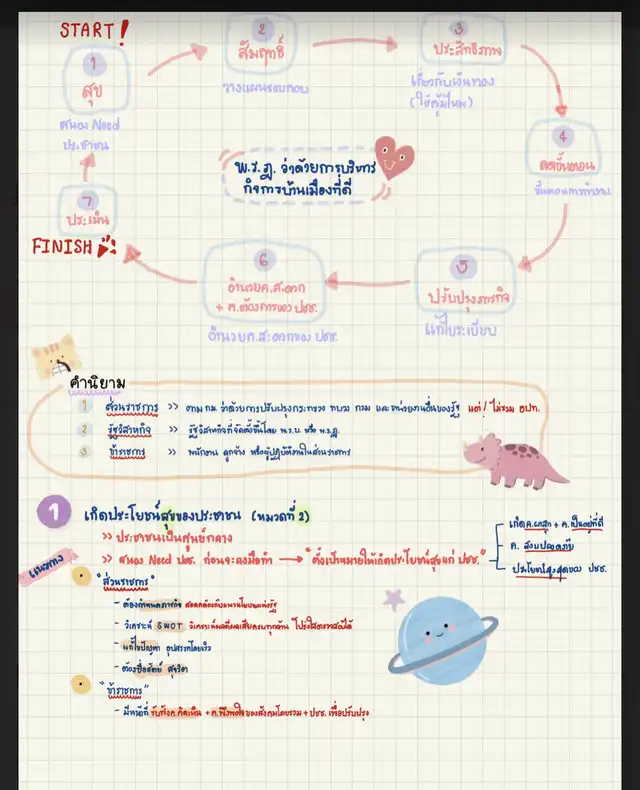 START!
1
สุข
สนอง Need
ประชาชน
2
สัมฤทธิ์
วางแผนรอบคอบ
3
ประสิทธิภาพ
เกี่ยวกับเงินทอง
(ใช้คุ้มไหม)
4
ลดขั้นตอน
ขั้นตอนการทำงาน
5
ปรับปรุงภารกิจ
แก้ไขระเบียบ
6
อำนวยค.สะดวก
+ ค.ต้องการของ ปชช.
อำนวย ค.สะดวกของ ปชช.
7
ประเมิน
FINISH
พ.ร.ฎ. ว่าด้วยการบริหาร
กิจการบ้านเมืองที่ดี
คำนิยาม
1 ส่วนราชการ >> ตาม กม. ว่าด้วยการปรับปรุงกระทรวง ทบวง กรม และหน่วยงานอื่นของรัฐ แต่! ไม่รวม อปท.
2 รัฐวิสาหกิจ >> รัฐวิสาหกิจที่จัดตั้งขึ้นโดย พ.ร.บ. หรือ พ.ร.ฎ.
3 ข้าราชการ >> พนักงาน ลูกจ้าง หรือผู้ปฏิบัติงานในส่วนราชการ
1 เกิดประโยชน์สุขของประชาชน (หมวดที่ 2)
>> ประชาชนเป็นศูนย์กลาง
>> สนอง Need ปชช. ก่อนจะลงมือทำ → "ตั้งเป้าหมายให้เกิดประโยชน์สุขแก่ ปชช."
เกิดค.ผาสุก + ค.เป็นอยู่ที่ดี
ค. สงบปลอดภัย
ประโยชน์สูงสุดของ ปชช.
แนวทาง
"ส่วนราชการ"
- ต้องกำหนดภารกิจ สอดคล้องกับแนวนโยบายแห่งรัฐ
- วิเคราะห์ SWOT วิเคราะห์ผลดีผลเสียครบทุกด้าน โปร่งใสตรวจสอบได้
- แก้ไขปัญหา อุปสรรคโดยเร็ว
- ต้องซื่อสัตย์ สุจริต
"ข้าราชการ"
- มีหน้าที่ รับฟังค.คิดเห็น + ค.พึงพอใจของสังคมโดยรวม + ปชช. เพื่อปรับปรุง